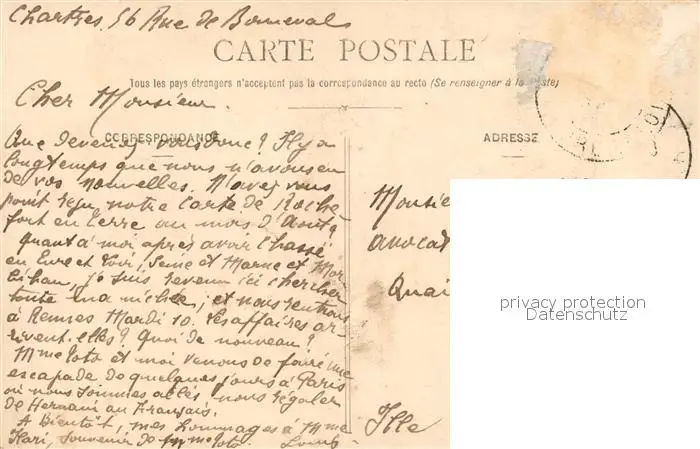 Chartres, 56 Rue de Bonneval
CARTE POSTALE
Tous les pays étrangers n'acceptent pas la correspondance au recto (Se renseigner à la Poste)
Cher Monsieur.
CORRESPONDANCE
ADRESSE
Que devenez vous donc? Il y a
longtemps que nous n'avons eu
de vos nouvelles. N'avez vous
point reçu notre carte de Roche-
fort en Terre au mois d'Août?
Quant à moi après avoir chassé
en Eure et Loir, Seine et Marne et Mor-
bihan, je suis revenu ici chercher
toute ma, et nous rentrons
à Rennes Mardi 10. Les affaires ar-
rivent-elles? Quoi de nouveau?
Mme Toto et moi venons de faire une
escapade de quelques jours à Paris
où nous sommes allés nous régaler
de Hernani au Français.
A Bientôt, mes hommages à Mme
souvenir de Mme Toto.
Monsie
avocat
Quai
Ille
privacy protection
Datenschutz